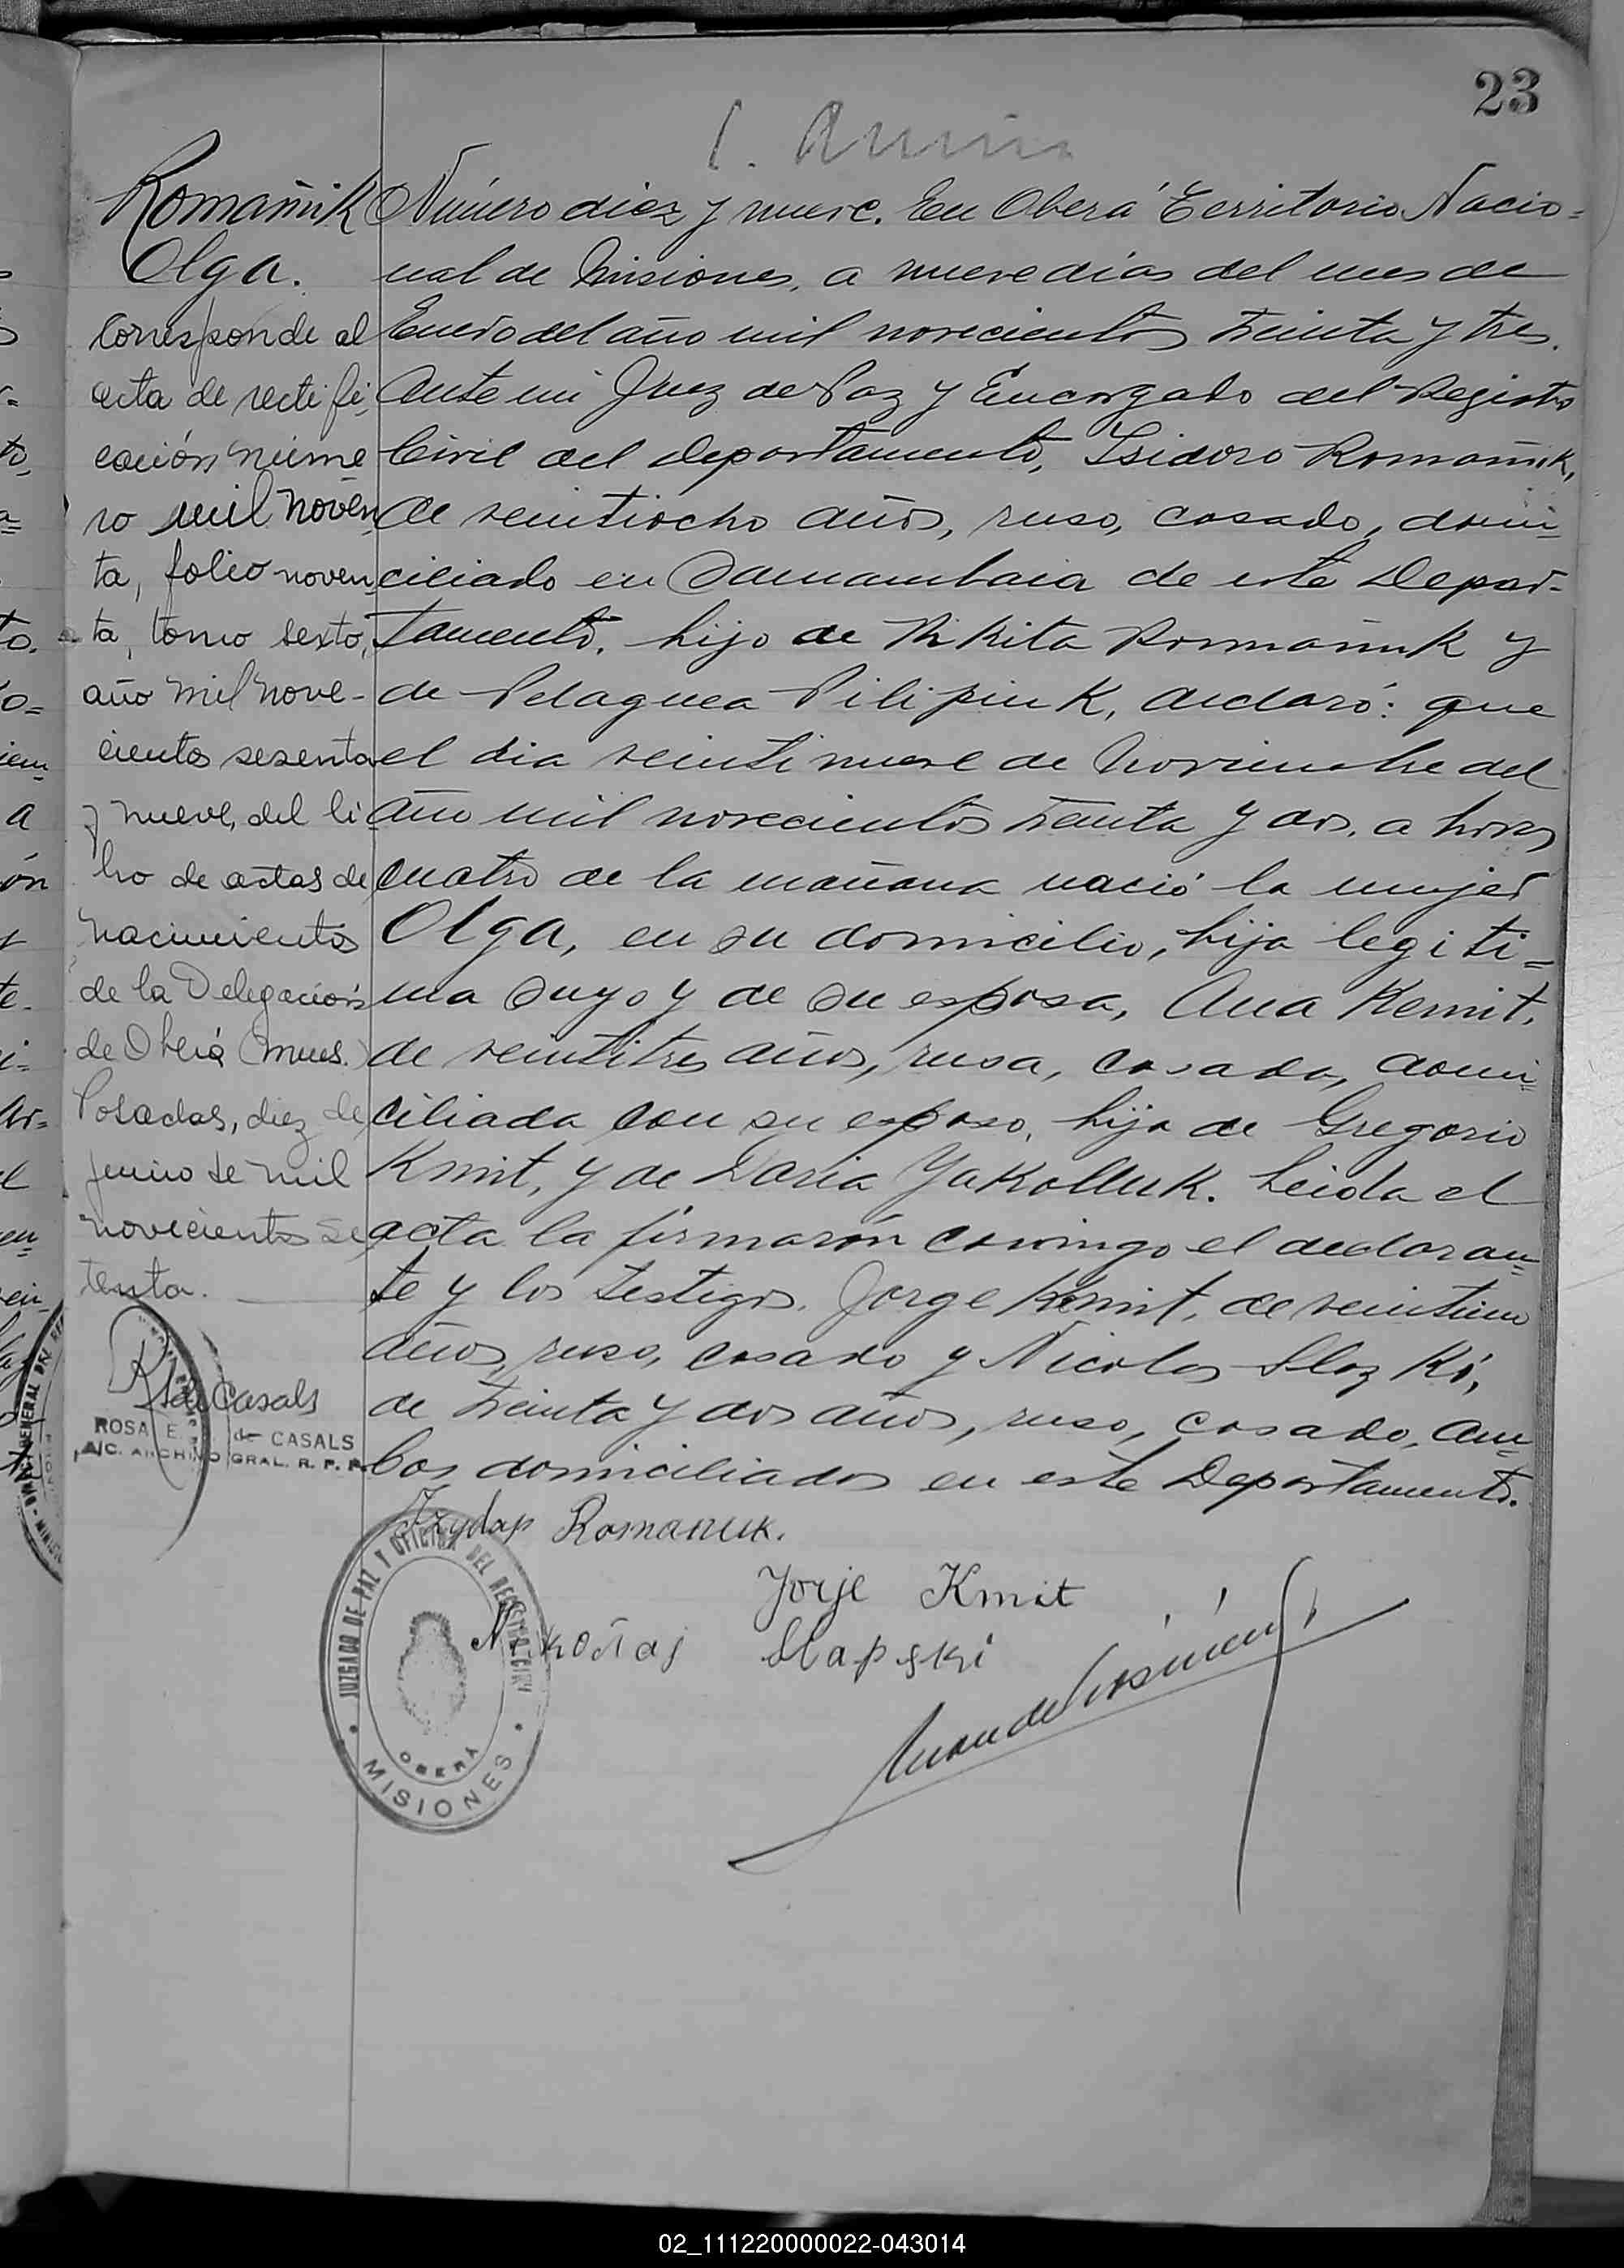 23
Romañik
Olga.
Corresponde al
acta de rectifi,
cación núme
ro mil noven,
ta, folio noven
ta, tomo sexto,
año mil nove-
cientos sesenta
y nueve, del li
bro de actas de
nacimientos
de la Delegación
de Oberá (Mnes.)
Posadas, diez de
junio de mil
novecientos se
tenta.
R de Casals
ROSA E. de CASALS
A/C. ARCHIVO GRAL. R. P. P.
Número diez y nueve. En Oberá Territorio Nacio=
nal de Misiones, a nueve dias del mes de
Enero del año mil novecientos treinta y tres.
Ante mi Juez de Paz y Encargado del Registro
Civil del departamento, Isidoro Romañik,
de veintiocho años, ruso, casado, domi=
ciliado en Samambaia de este Depar-
tamento, hijo de Nikita Romañuk y
de Pelaguea Pilipiuk, declaró: que
el dia veintinueve de Noviembre del
año mil novecientos treinta y dos, a horas
cuatro de la mañana nació la mujer
Olga, en su domicilio, hija legiti=
ma suya y de su esposa, Ana Kemit,
de veintitres años, rusa, casada, domi=
ciliada con su esposo, hija de Gregorio
Kmit, y de Daria Yakolluk. Leida el
acta la firmarón conmigo el declaran=
te y los testigos, Jorge Kemit, de veintiun
años, ruso, casado y Nicolas Slazki,
de treinta y dos años, ruso, casado, am=
bos domiciliados en este Departamento.
Izydap Romanuk.
Jorje Kmit
Nikołaj Slapski
JUZGADO DE PAZ Y OFICINA DEL REGISTRO CIVIL
OBERÁ
• MISIONES •
02_111220000022-043014